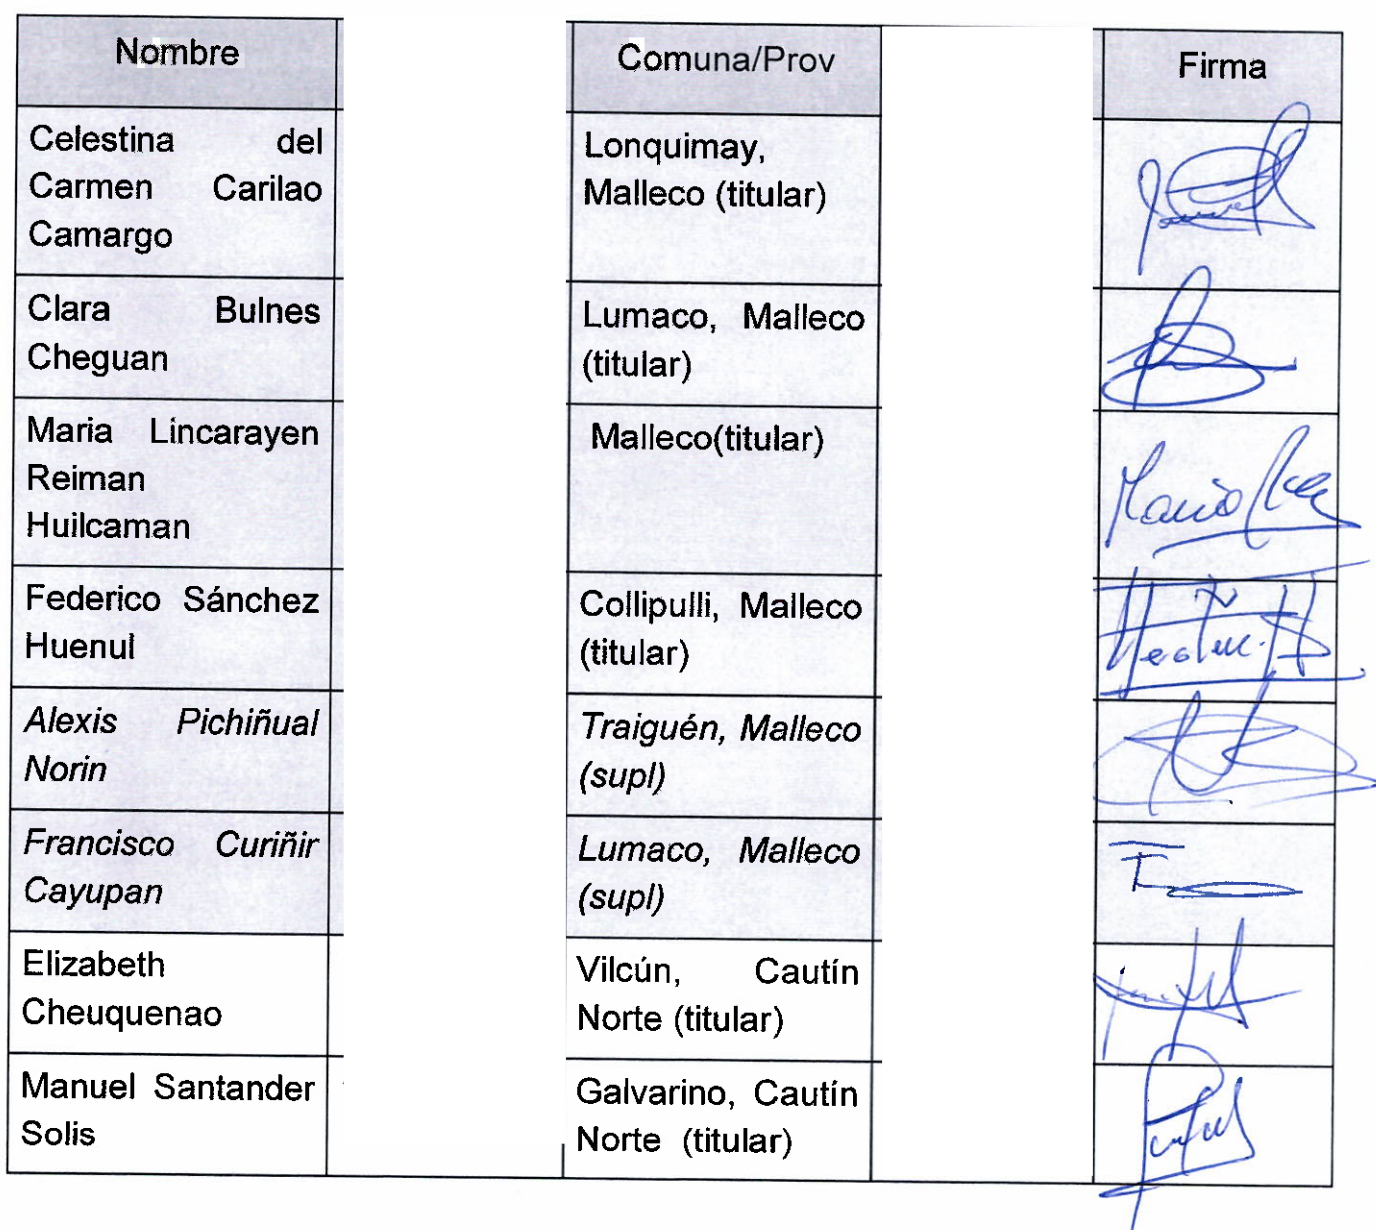 Nombre
Comuna/Prov
Firma
Celestina del
Carmen Carilao
Camargo
Lonquimay,
Malleco (titular)
Clara Bulnes
Cheguan
Lumaco, Malleco
(titular)
Maria Lincarayen
Reiman
Huilcaman
Malleco(titular)
Federico Sánchez
Huenul
Collipulli, Malleco
(titular)
Alexis Pichiñual
Norin
Traiguén, Malleco
(supl)
Francisco Curiñir
Cayupan
Lumaco, Malleco
(supl)
Elizabeth
Cheuquenao
Vilcún, Cautín
Norte (titular)
Manuel Santander
Solis
Galvarino, Cautín
Norte (titular)